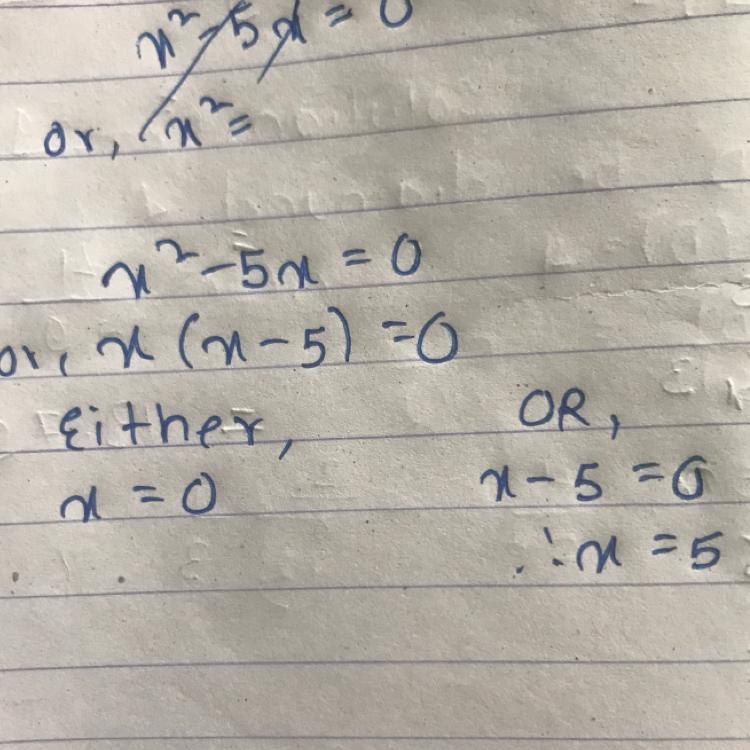 x² - 5x = 0
or, x² =
x² - 5x = 0
or, x (x - 5) = 0
Either, OR,
x = 0 x - 5 = 0
∴ x = 5